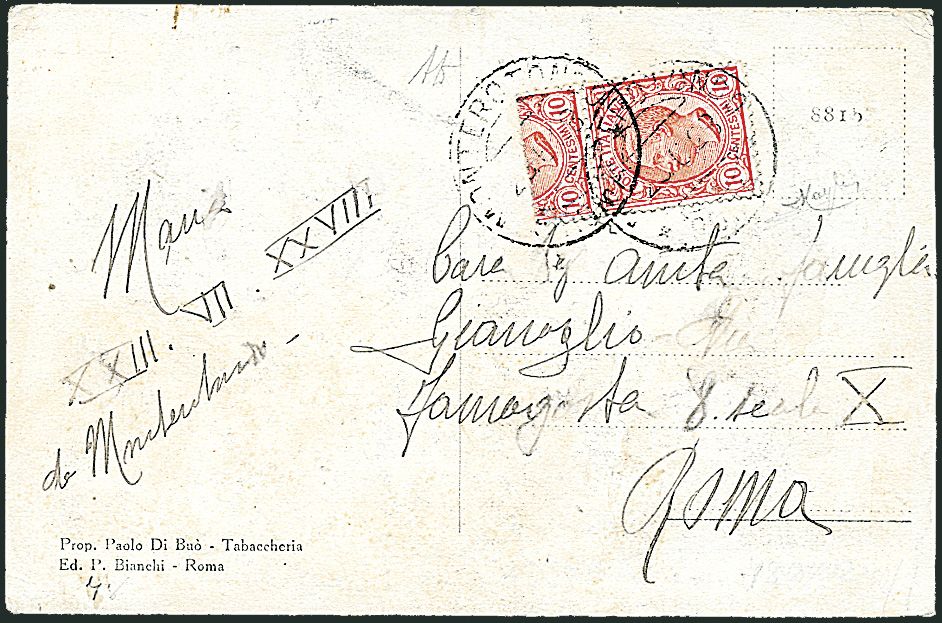 Maria
XXIII. VII. XXVIII
da Monterotondo -
Prop. Paolo Di Buò - Tabaccheria
Ed. P. Bianchi - Roma
MONTEROTONDO
10 10
CENTESIMI
10 10
POSTE ITALIANE
CENTESIMI
8815
Cara famiglia
Gianoglio - Via
8. scala X
Roma